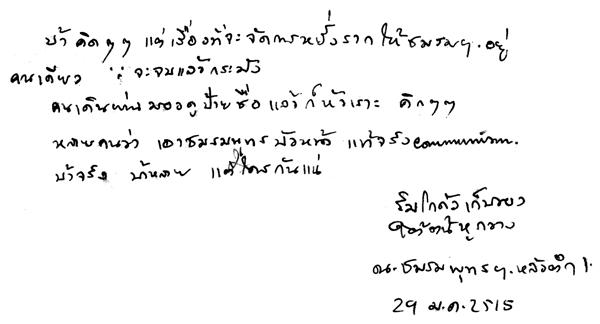 บ้าคิดๆๆ แต่เรื่องที่จะจัดการหยั่งรากให้ชมรมฯ.อยู่
คนเดียว จะจบแล้วกระมัง
คนเดินผ่านมองดูป้ายชื่อแล้วก็หัวเราะ คิกๆๆ
หลายคนว่า เอาชมรมพุทธบังหน้า แท้จริง communism.
บ้าจริง บ้าหลาย แต่ใครกันแน่
ริมใกล้ห้องเก็บของ
ใต้ต้นหูกวาง
ณ.ชมรมพุทธฯ.หลังตึก 1.
29 ม.ค. 2515